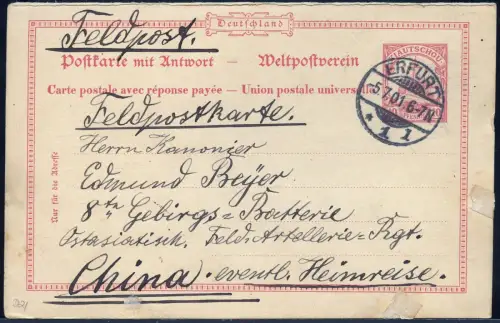 Deutschland
Feldpost.
Postkarte mit Antwort – Weltpostverein
KIAUTSCHOU
Carte postale avec réponse payée – Union postale univers
ERFURT
5.7.01.6-7N.
* 1 1
Feldpostkarte.
Nur für die Adresse
Herrn Kanonier
Edmund Beyer
8te Gebirgs=Batterie
Ostasiatisch. Feld-Artellerie-Rgt.
China). eventl. Heimreise.